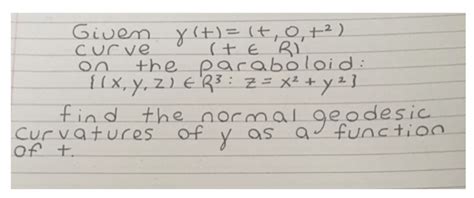 Given γ(t)=(t,0,t²)
curve (t ∈ R)
on the paraboloid:
{(x,y,z) ∈ R³: z = x² + y²}
find the normal geodesic
curvatures of γ as a function
of t.